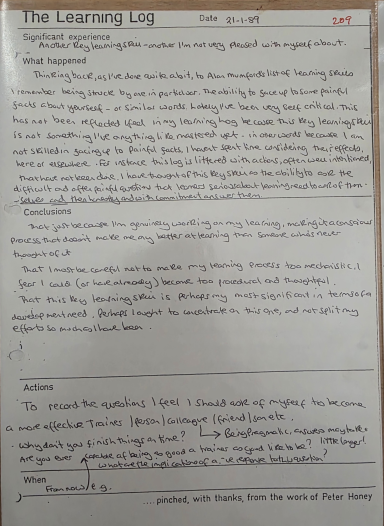 The Learning Log Date 21-1-89 209
Significant experience
Another key learning skill - another I'm not very pleased with myself about.
What happened
Thinking back, as I've done quite a bit, to Alan Mumford's list of learning skills
I remember being struck by one in particular. The ability to face up to some painful
facts about yourself - or similar words. Lately I've been very self critical. This
has not been reflected in my learning log because this key learning skill
is not something I've anything like mastered yet - in other words because I am
not skilled in facing up to painful facts, I haven't spent time considering their effects,
here or elsewhere. For instance this log is littered with actions, often well intentioned,
that have not been done. I have thought of this key skill as the ability to ask the
difficult and often painful questions that learners serious about learning need to ask of them-
selves and then honestly and with commitment answer them.
Conclusions
That just because I'm genuinely working on my learning, making it a conscious
process that doesn't make me any better at learning than someone who's never
thought of it
That I must be careful not to make my learning process too mechanistic. I
fear I could (or have already) become too procedural and thoughtful.
That this key learning skill is perhaps my most significant in terms of a
development need. Perhaps I ought to concentrate on this one, and not split my
efforts so much as I have been.
Actions
To record the questions I feel I should ask of myself to become
a more effective trainer / person / colleague / friend / son etc.
- Why don't you finish things on time? Being pragmatic, answers may take a little longer!
Are you ever capable of being as good a trainer as you'd like to be?
what are the implications of a -ve response to this question?
When
From now
.... pinched, with thanks, from the work of Peter Honey